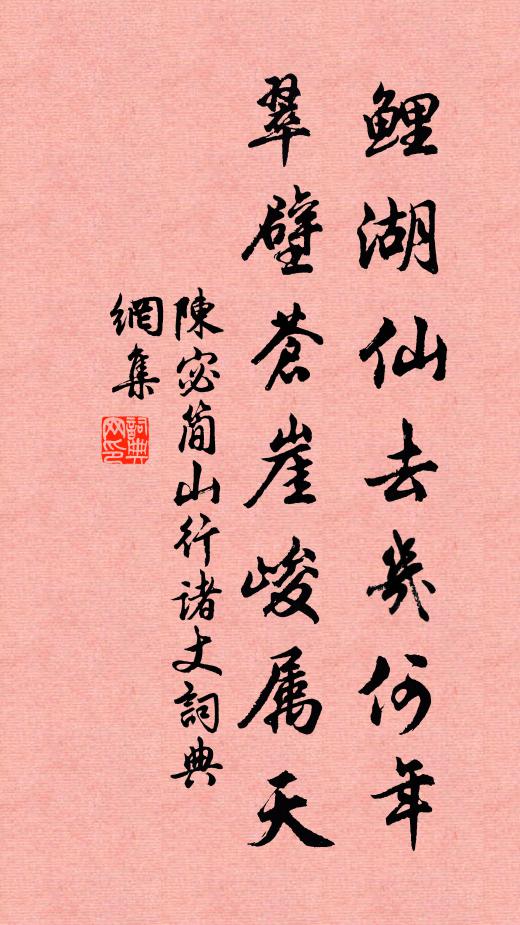 鲤湖仙去幾何年
翠壁苍崖峻属天
陳宓简山行诸丈詞典
網集
詞典
网印